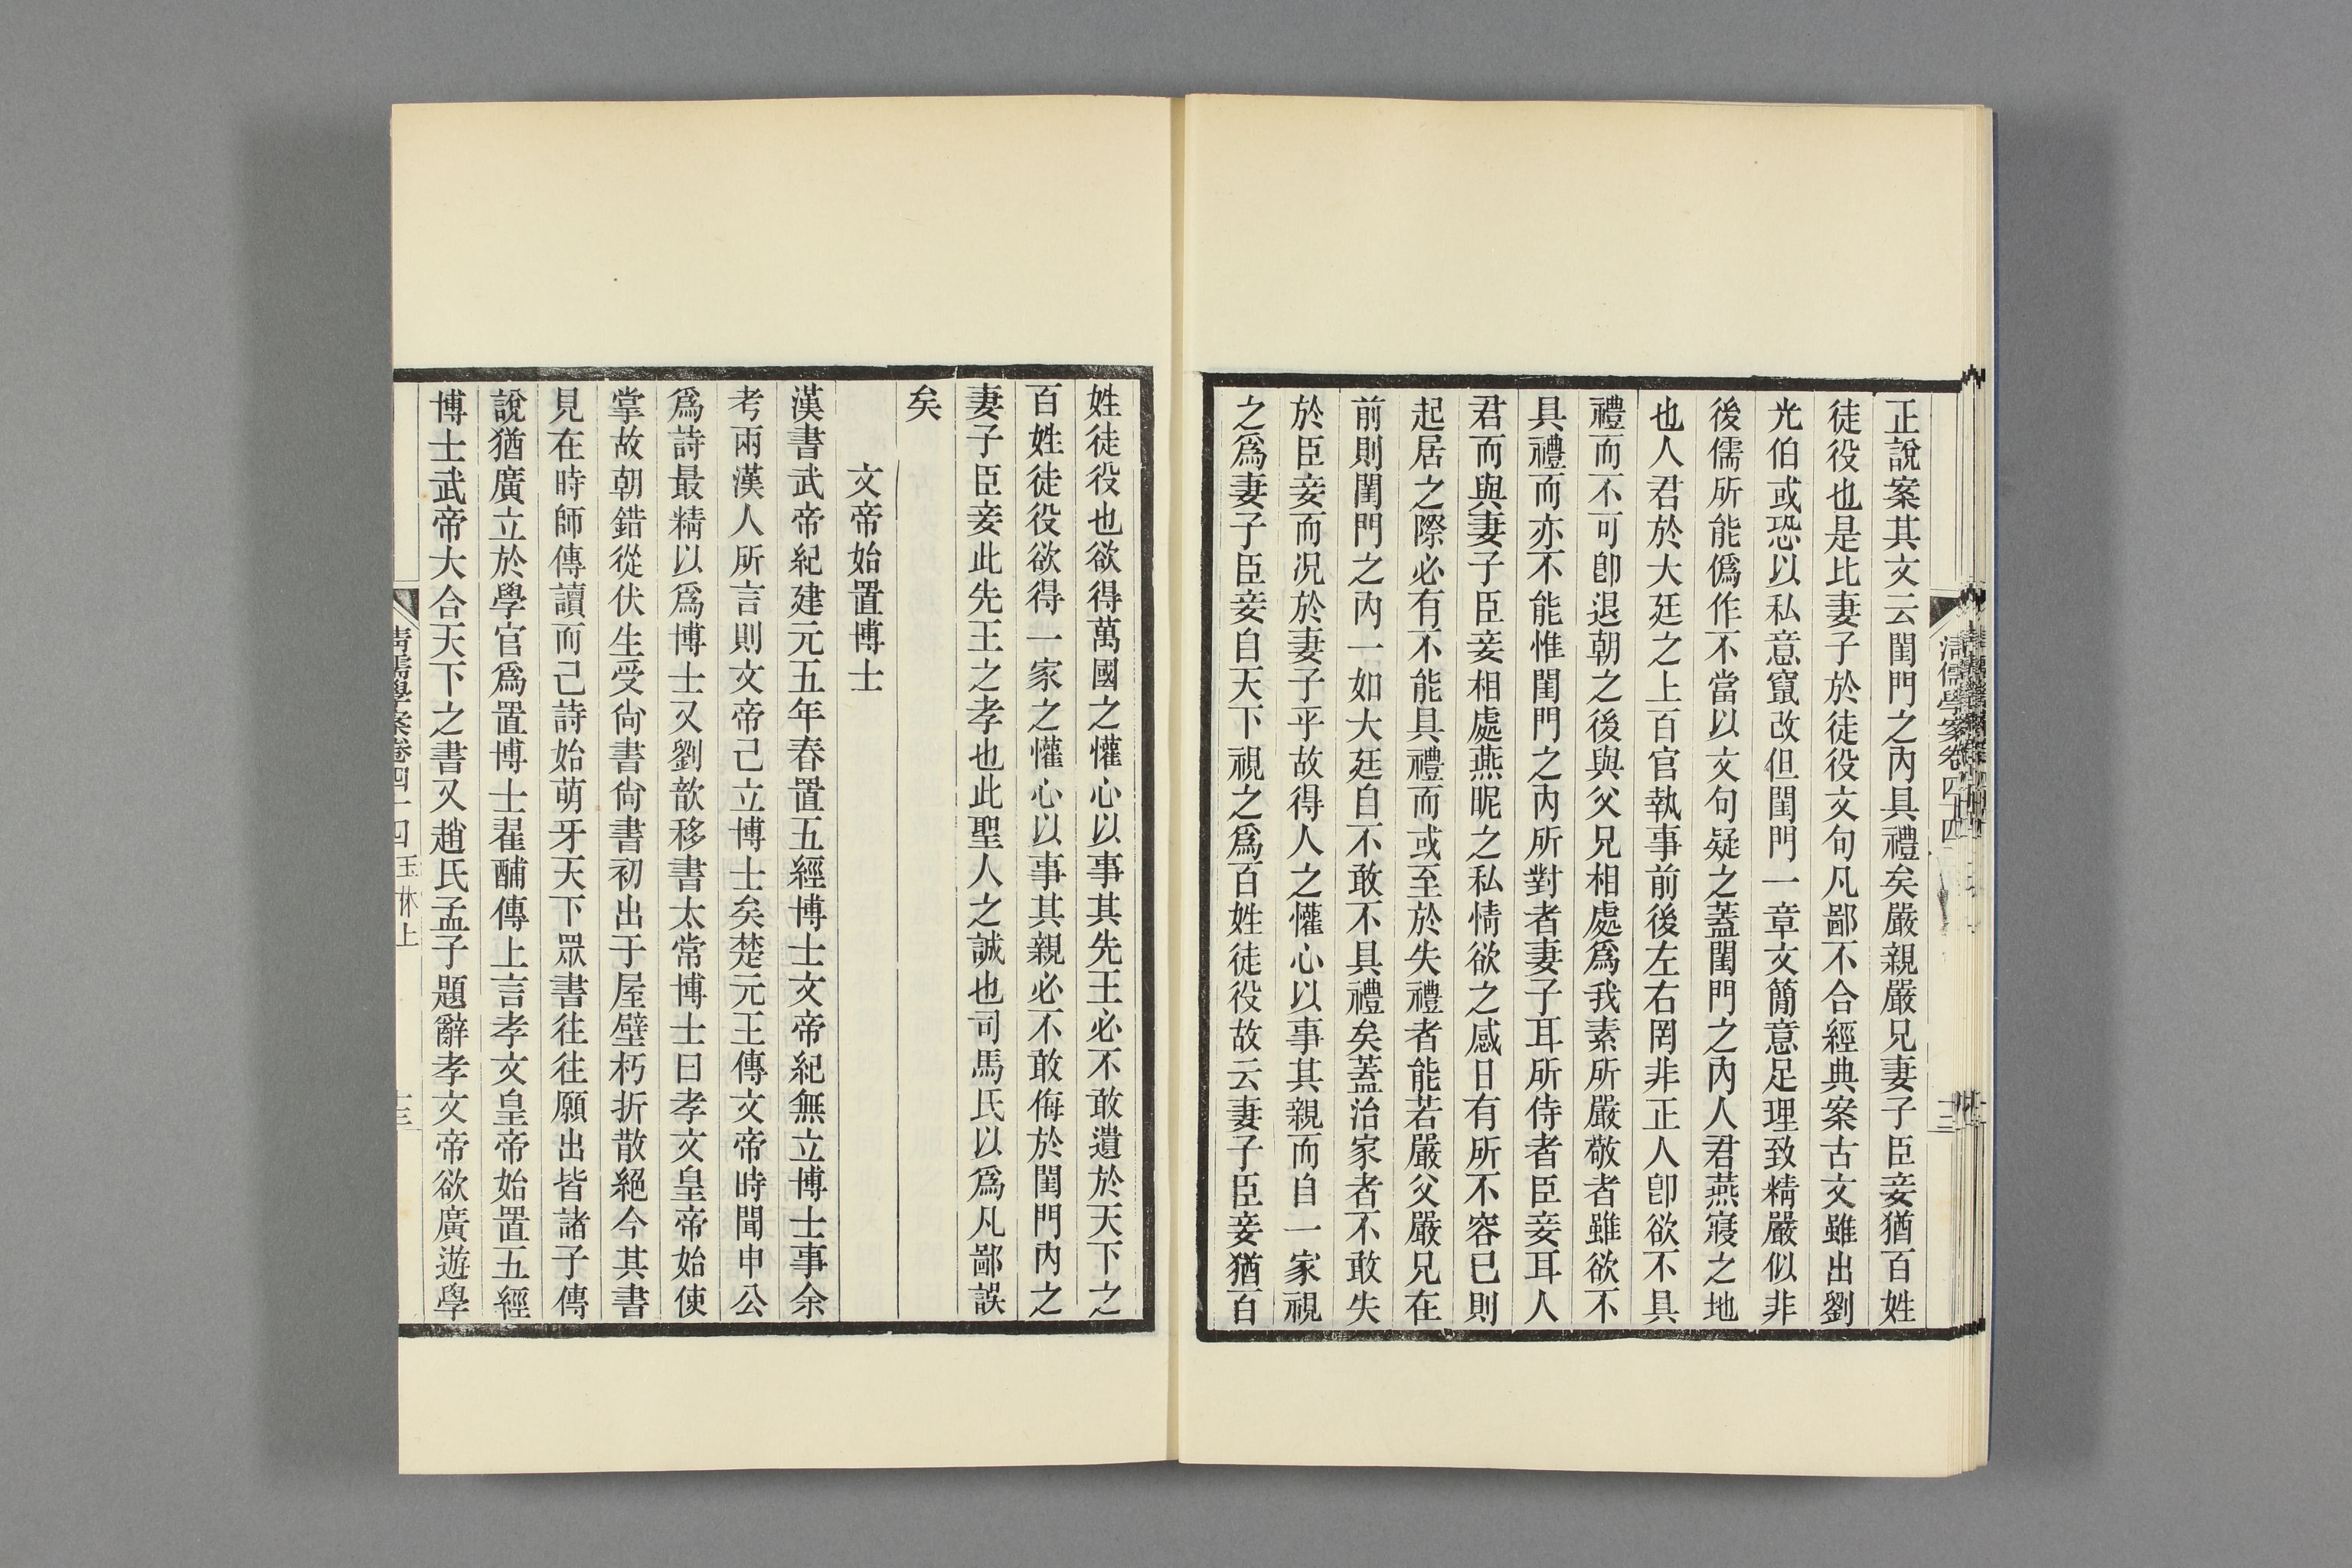 正說案其文云閨門之內具禮矣嚴親嚴兄妻子臣妾猶百姓
徒役也是比妻子於徒役文句凡鄙不合經典案古文雖出劉
光伯或恐以私意竄改但閨門一章文簡意足理致精嚴似非
後儒所能僞作不當以文句疑之蓋閨門之內人君燕寢之地
也人君於大廷之上百官執事前後左右罔非正人卽欲不具
禮而不可卽退朝之後與父兄相處爲我素所嚴敬者雖欲不
具禮而亦不能惟閨門之內所對者妻子耳所侍者臣妾耳人
君而與妻子臣妾相處燕昵之私情欲之感日有所不容已則
起居之際必有不能具禮而或至於失禮者能若嚴父嚴兄在
前則閨門之內一如大廷自不敢不具禮矣蓋治家者不敢失
於臣妾而況於妻子乎故得人之懽心以事其親而自一家視
之爲妻子臣妾自天下視之爲百姓徒役故云妻子臣妾猶百
姓徒役也欲得萬國之懽心以事其先王必不敢遺於天下之
百姓徒役欲得一家之懽心以事其親必不敢侮於閨門內之
妻子臣妾此先王之孝也此聖人之誠也司馬氏以爲凡鄙誤
矣
文帝始置博士
漢書武帝紀建元五年春置五經博士文帝紀無立博士事余
考兩漢人所言則文帝已立博士矣楚元王傳文帝時聞申公
爲詩最精以爲博士又劉歆移書太常博士曰孝文皇帝始使
掌故朝錯從伏生受尙書尙書初出于屋壁朽折散絕今其書
見在時師傳讀而已詩始萌牙天下眾書往往願出皆諸子傳
說猶廣立於學官爲置博士翟酺傳上言孝文皇帝始置五經
博士武帝大合天下之書又趙氏孟子題辭孝文帝欲廣遊學
清儒學案卷四十四 玉林上
十三